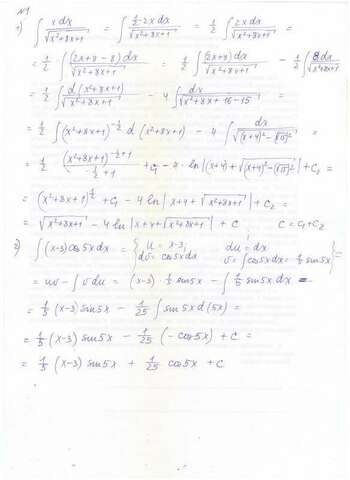 N1
1) ∫ x dx / √(x²+8x+1) = ∫ ½·2x dx / √(x²+8x+1) = ½ ∫ 2x dx / √(x²+8x+1) =
= ½ ∫ (2x+8-8) dx / √(x²+8x+1) = ½ ∫ (2x+8) dx / √(x²+8x+1) - ½ ∫ 8 dx / √(x²+8x+1)
= ½ ∫ d(x²+8x+1) / √(x²+8x+1) - 4 ∫ dx / √(x²+8x+16-15) =
= ½ ∫ (x²+8x+1)^(-½) d(x²+8x+1) - 4 ∫ dx / √((x+4)²-(√15)²) =
= ½ (x²+8x+1)^(-½+1) / (-½+1) + C₁ - 4·ln|(x+4)+√((x+4)²-(√15)²)| + C₂ =
= (x²+8x+1)^½ + C₁ - 4ln|x+4+√(x²+8x+1)| + C₂ =
= √(x²+8x+1) - 4ln|x+4+√(x²+8x+1)| + C C=C₁+C₂
2) ∫(x-3)cos5x dx = { u = x-3; du = dx
dv = cos5x dx v = ∫cos5x dx = ⅕ sin5x } =
= uv - ∫v du = (x-3)·⅕ sin5x - ∫⅕ sin5x dx =
= ⅕ (x-3) sin5x - 1/25 ∫ sin5x d(5x) =
= ⅕ (x-3) sin5x - 1/25 (-cos5x) + C =
= ⅕ (x-3) sin5x + 1/25 cos5x + C